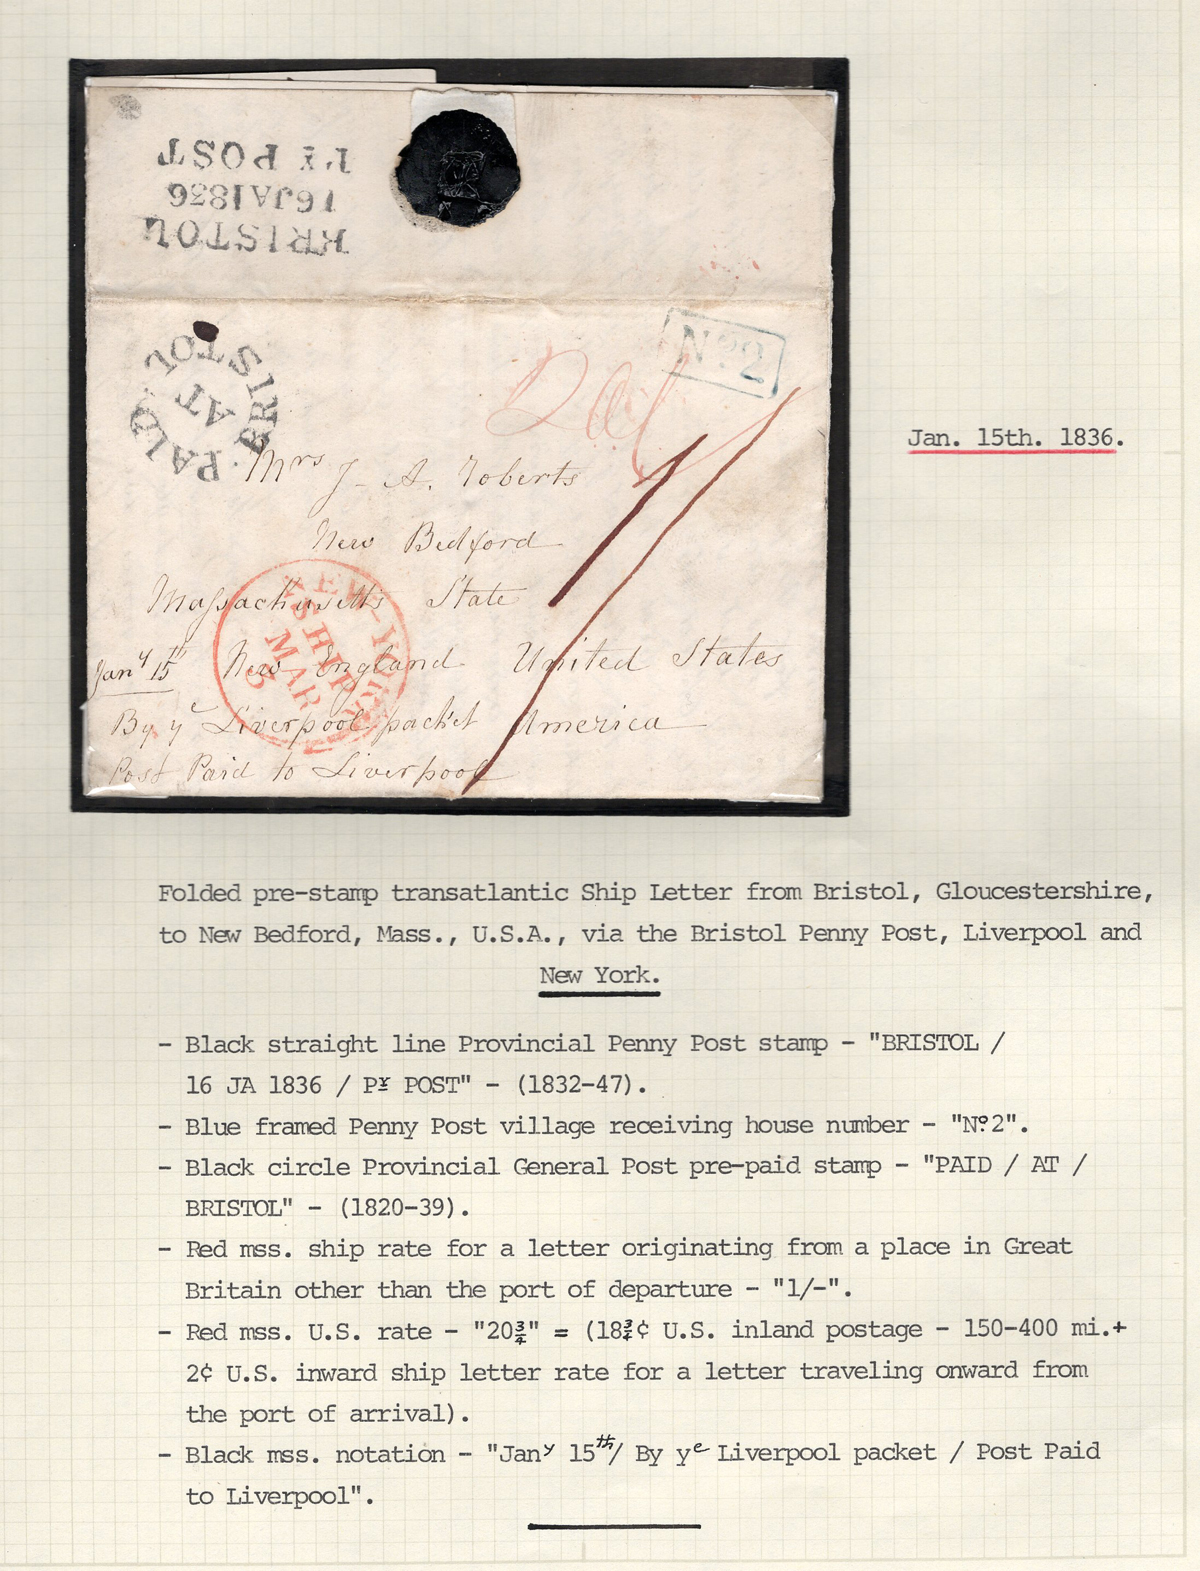 BRISTOL
16JA1836
Pʸ POST
PAID AT BRISTOL
Nº2
Mrs J. A. Roberts
New Bedford
Massachusetts State
Janʸ 15ᵗʰ New England United States
By yᵉ Liverpool packet America
Post Paid to Liverpool
NEW-YORK
SHIP
MAR
Jan. 15th. 1836.
Folded pre-stamp transatlantic Ship Letter from Bristol, Gloucestershire,
to New Bedford, Mass., U.S.A., via the Bristol Penny Post, Liverpool and
New York.
- Black straight line Provincial Penny Post stamp - "BRISTOL /
16 JA 1836 / Pʸ POST" - (1832-47).
- Blue framed Penny Post village receiving house number - "Nº2".
- Black circle Provincial General Post pre-paid stamp - "PAID / AT /
BRISTOL" - (1820-39).
- Red mss. ship rate for a letter originating from a place in Great
Britain other than the port of departure - "1/-".
- Red mss. U.S. rate - "20¾" = (18¾¢ U.S. inland postage - 150-400 mi.+
2¢ U.S. inward ship letter rate for a letter traveling onward from
the port of arrival).
- Black mss. notation - "Janʸ 15ᵗʰ/ By yᵉ Liverpool packet / Post Paid
to Liverpool".